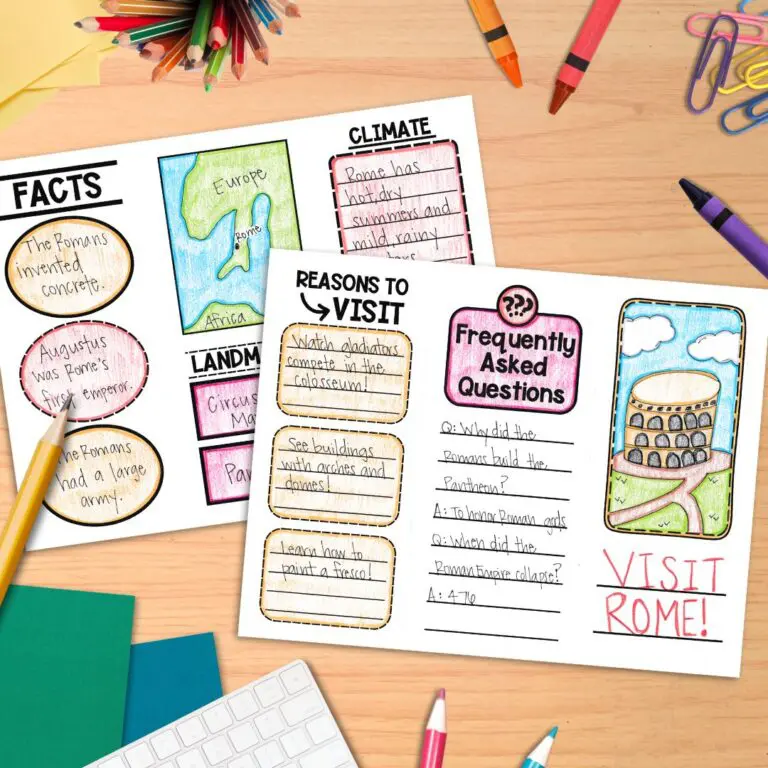 FACTS
The Romans
invented
concrete.
Augustus
was Rome's
first emperor.
The Romans
had a large
army.
Europe
Rome
Africa
LANDM
Circus
Ma
Pan
CLIMATE
Rome has
hot, dry
summers and
mild, rainy
REASONS TO
VISIT
Watch gladiators
compete in the
colosseum!
See buildings
with arches and
domes!
Learn how to
paint a fresco!
???
Frequently
Asked
Questions
Q: Why did the
Romans build the
Pantheon?
A: To honor Roman gods
Q: When did the
Roman Empire collapse?
A: 476
VISIT
ROME!